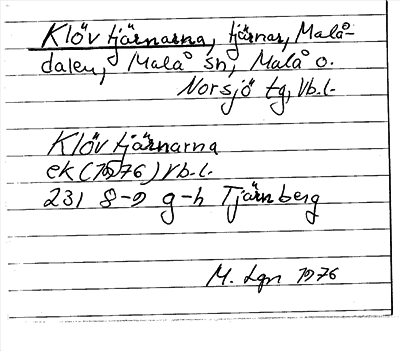 Klöv tjärnarna, tjärnar, Malå-
dalen, Malå sn, Malå o.
Norsjö tg, Vb.l.
Klöv tjärnarna
ek (1976) Vb.l.
231 8-9 g-h Tjärnberg
M. Lgn 1976